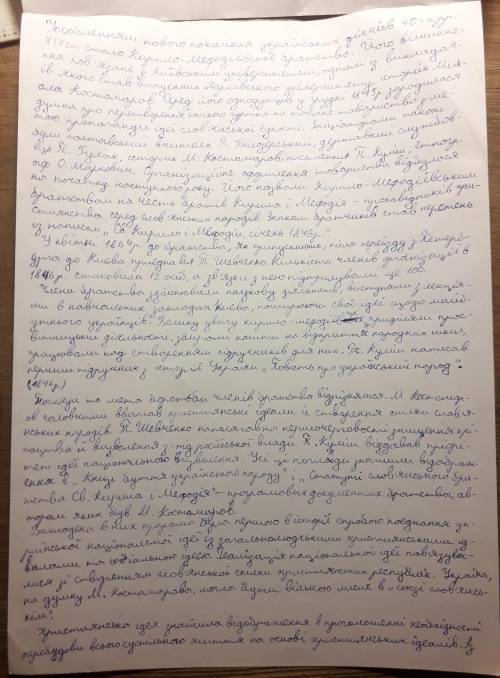 Уособленням нового покоління українських діячів 40-х рр.
ХІХ ст. стало Кирило-Мефодіївське братство. Його виникне-
ння пов'язане з Київським університетом, одним з викладач-
ів якого став випускник Харківського університету, історик Мик-
ола Костомаров. Серед його однодумців у грудні 1845р. зародилася
думка про перетворення їхнього гуртка на таємне товариство з ме-
тою пропаганди ідеї слов'янської єдності. Ініціаторами також
були полтавський вчитель В. Білозерський, державний службов-
ець М. Гулак, історик М. Костомаров, письменник П. Куліш, етногр-
аф О. Маркович. Організаційне оформлення товариства відбулося
на початку наступного року. Його назвали Кирило-Мефодіївським
братством на честь братів Кирила і Мефодія – проповідників хри-
стиянства серед слов'янських народів. Знаком братчиків став перстень
із написом „Св. Кирило і Мефодій, січень 1846р."
У квітні 1864р. до братства, як припускають, після переїзду з Петерб-
урга до Києва приєднався Т. Шевченко. Кількість членів організації в
1846р. становила 12 осіб, а зв'язки з нею підтримували ще 100.
Члени братства здійснювали наукову діяльність, виступали з лекція-
ми в навчальних закладах Києва, поширюючи свої ідеї щодо майб-
утнього українців. Велику увагу кирило-мефодіївці приділяли прос-
вітницькій діяльності, збирали кошти на відкриття народних шкіл,
працювали над створенням підручників для них. П. Куліш написав
перший підручник з історії України „Повість про український народ".
(1846р.)
Погляди та мета боротьби членів братства відрізнялися. М. Костомар-
ов головними вважав християнські ідеали й створення спілки слов'я-
нських народів. Т. Шевченко наполягав на першочерговості знищення крі-
пацтва й визволення з-під російської влади. П. Куліш віддавав пріори-
тет ідеї національного визволення. Усі ці погляди знайшли відображ-
ення в „Книзі буття українського народу" і „Статуті слов'янського бра-
тства Св. Кирила і Мефодія" – програмових документах братства, ав-
тором яких був М. Костомаров.
Викладена в них програма була першою в історії спробою поєднання ук-
раїнської національної ідеї із загальнолюдськими християнськими ід-
еалами та соціальною ідеєю. Реалізація національної ідеї пов'язува-
лися зі створенням слов'янської спілки християнських республік. Україна,
на думку М. Костомарова, могла бути вільною лише в „союзі слов'янсь-
кім".
Християнська ідея знайшла відображення в проголошенні необхідності
перебудови всього суспільного життя на основі християнських ідеалів. Із